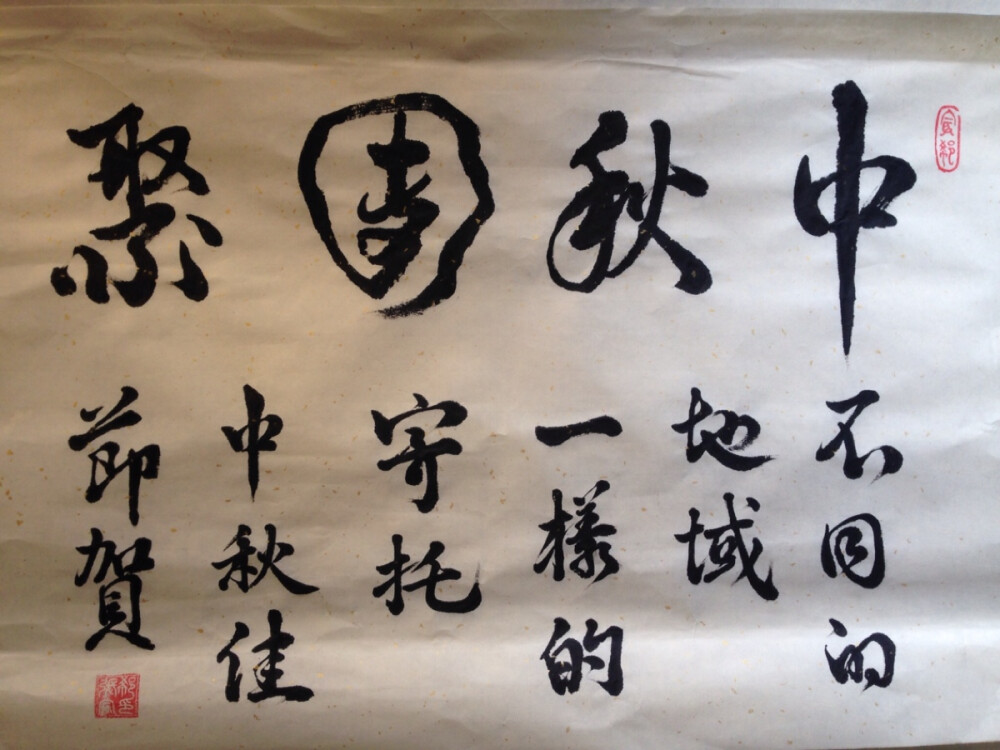 中秋團聚
不同的
地域
一樣的
寄托
中秋佳
節賀